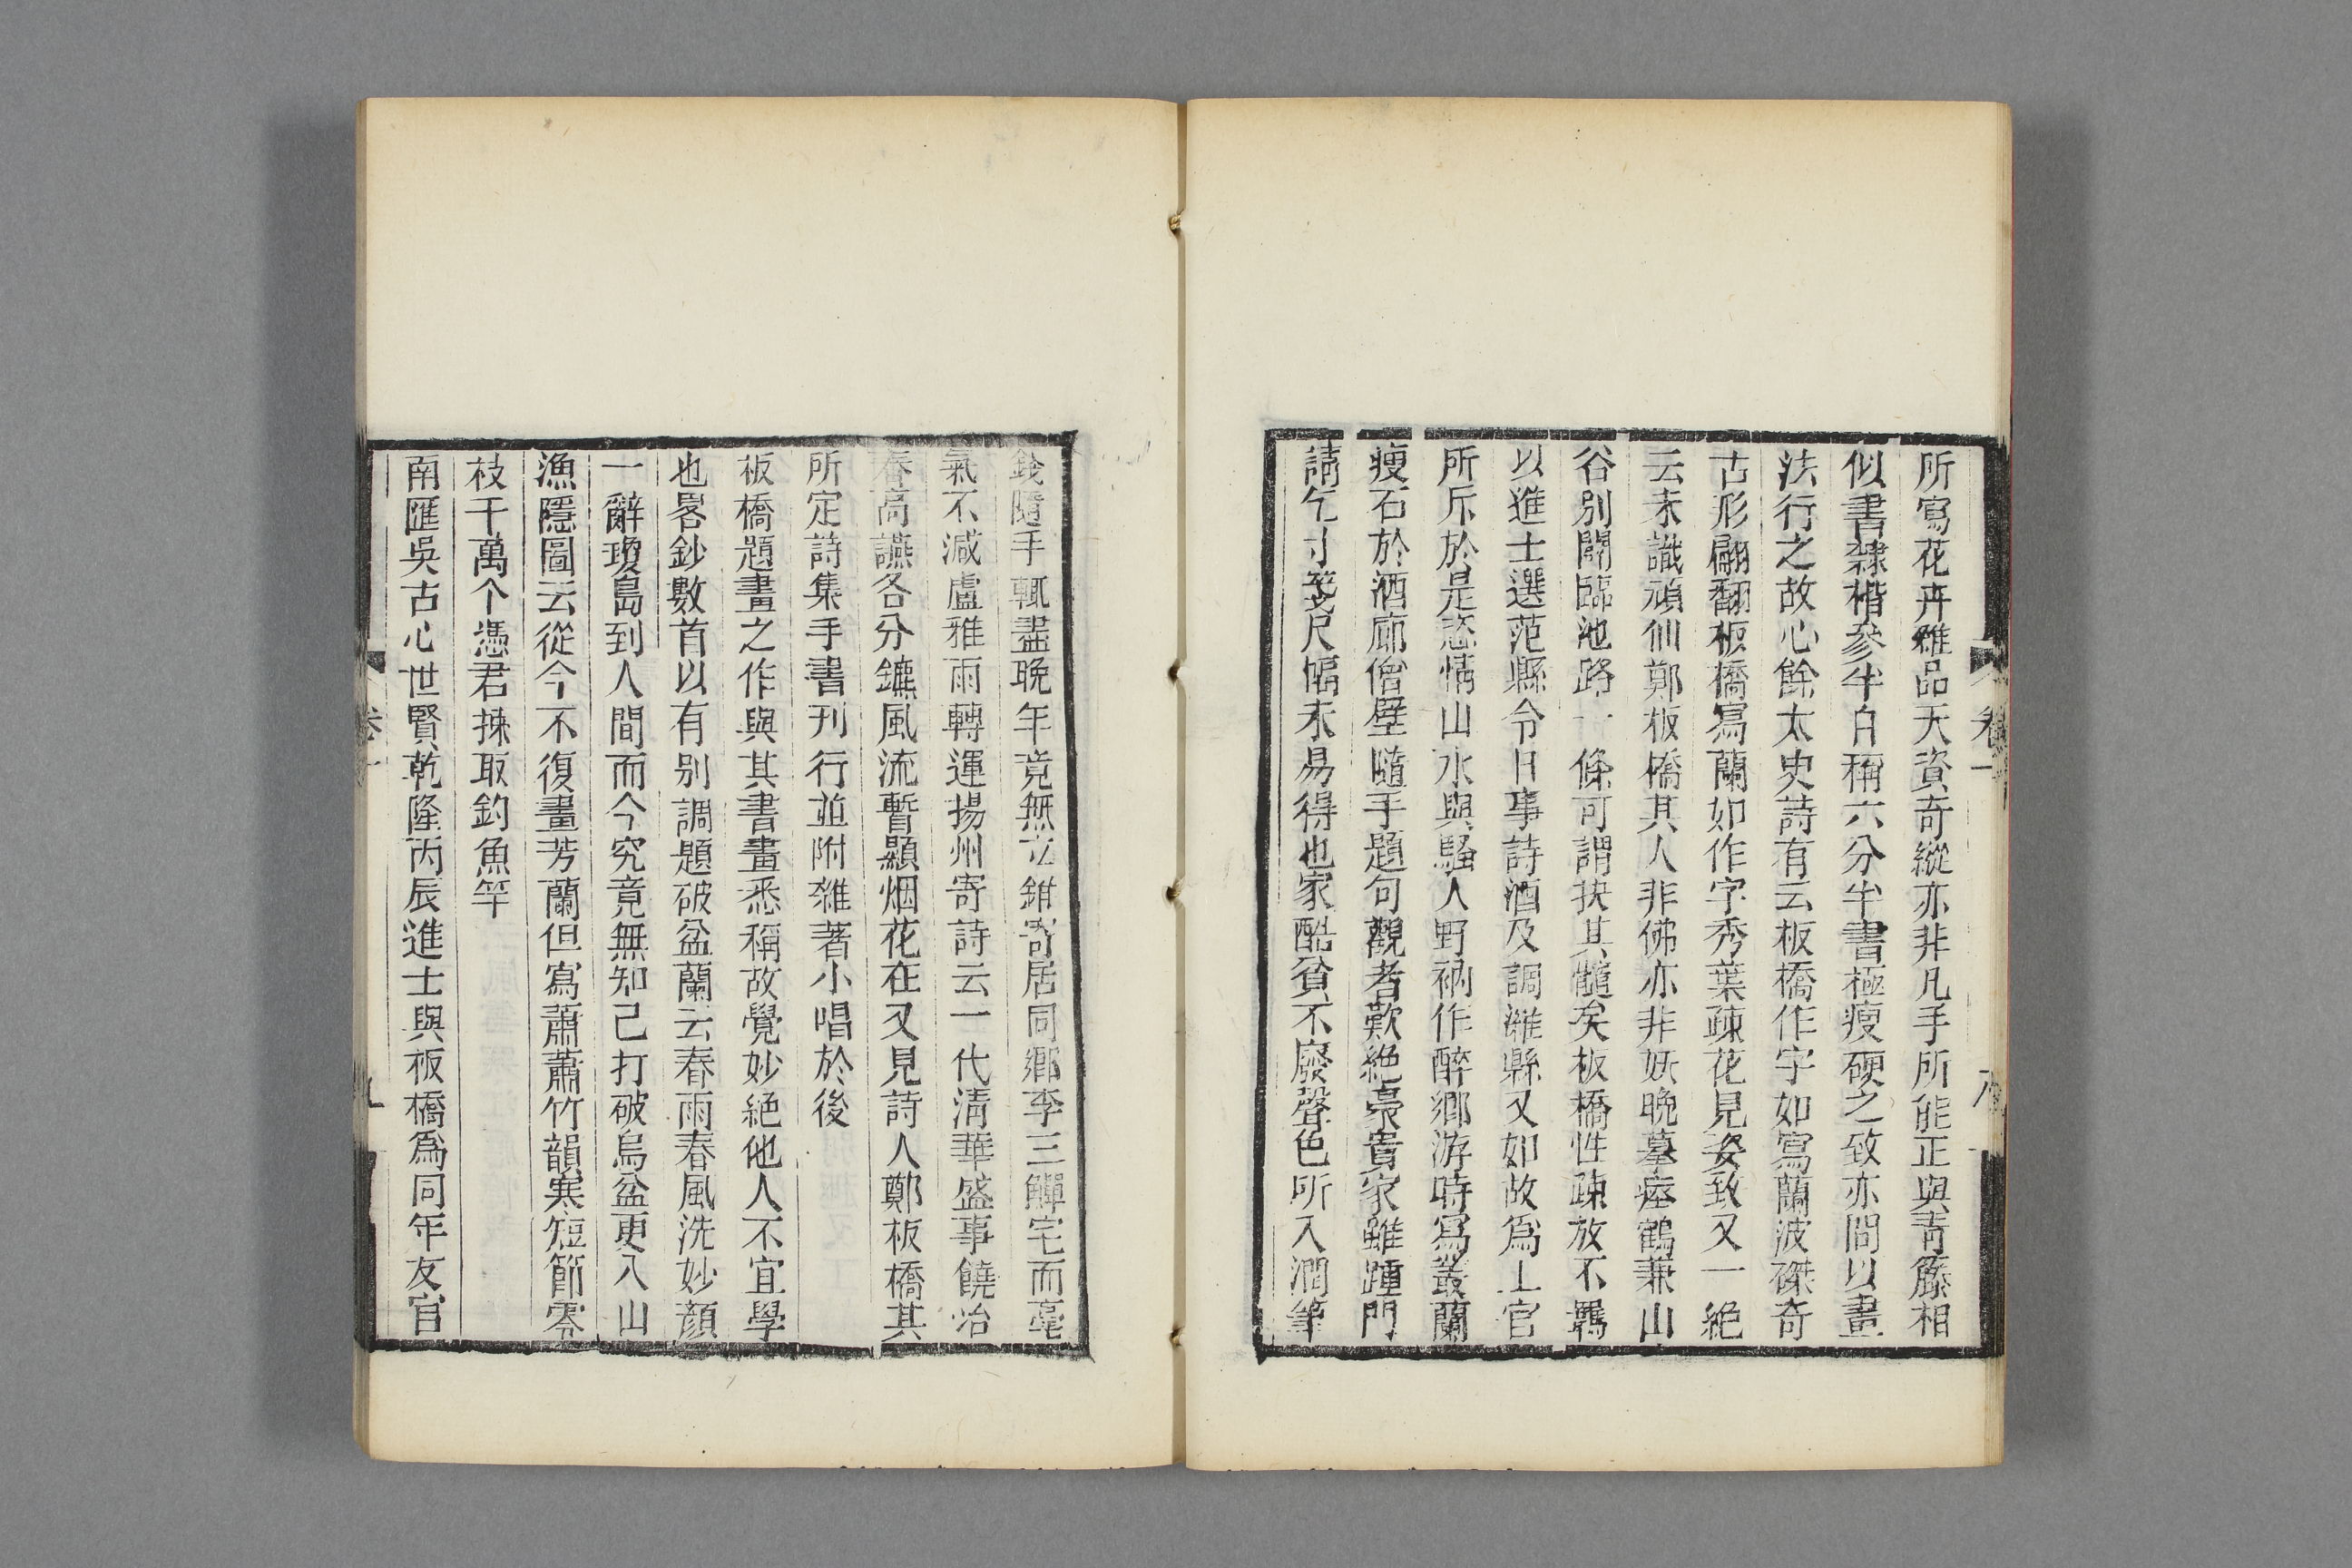 卷一
八
所寫花卉雜品天資奇縱亦非凡手所能正與靑籐相
似書隸楷參半自稱六分半書極瘦硬之致亦間以畫
法行之故心餘太史詩有云板橋作字如寫蘭波磔奇
古形翩翻板橋寫蘭如作字秀葉疎花見姿致又一絕
云未識頑仙鄭板橋其人非佛亦非妖晚摹瘞鶴兼山
谷別闢臨池路一條可謂抉其髓矣板橋性疎放不羈
以進士選范縣令日事詩酒及調濰縣又如故爲上官
所斥於是恣情山水與騷人野衲作醉鄉游時寫叢蘭
瘦石於酒廊僧壁隨手題句觀者歎絕豪貴家雖踵門
請乞寸箋尺幅未易得也家酷貧不廢聲色所入潤筆
錢隨手輒盡晚年竟無立錐寄居同鄉李三鱓宅而毫
氣不減盧雅雨轉運揚州寄詩云一代淸華盛事饒冶
春高讌各分鑣風流暫顯烟花在又見詩人鄭板橋其
所定詩集手書刊行並附雜著小唱於後
板橋題畫之作與其書畫悉稱故覺妙絕他人不宜學
也畧鈔數首以有別調題破盆蘭云春雨春風洗妙顏
一辭瓊島到人間而今究竟無知己打破烏盆更入山
漁隱圖云從今不復畫芳蘭但寫蕭蕭竹韻寒短節零
枝千萬个憑君揀取釣魚竿
南匯吳古心世賢乾隆丙辰進士與板橋爲同年友官
卷一
九